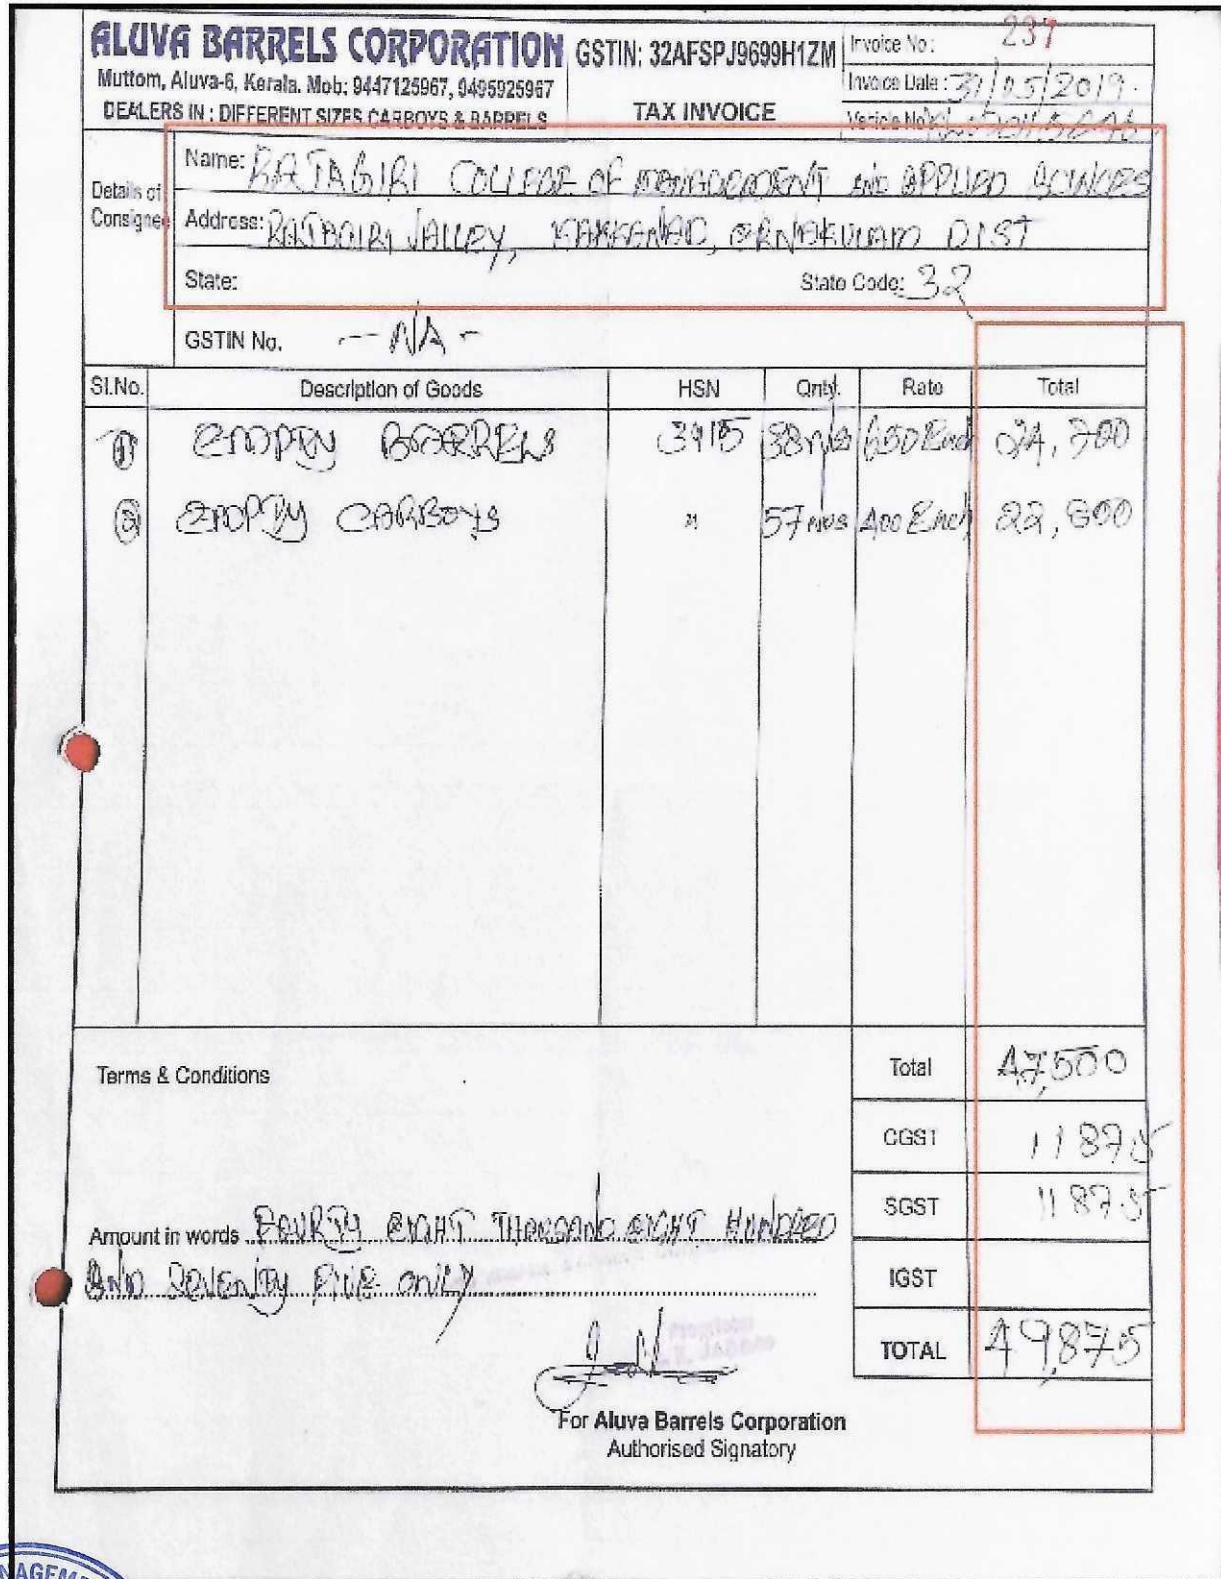 ALUVA BARRELS CORPORATION GSTIN: 32AFSPJ9699H1ZM
Muttom, Aluva-6, Kerala. Mob: 9447125967, 9495925967
DEALERS IN : DIFFERENT SIZES CARBOYS & BARRELS
TAX INVOICE
Invoice No : 237
Invoice Date : 31/05/2019.
Vehicle No
Details of Consignee
Name: RAJAGIRI COLLEGE OF MANAGEMENT AND APPLIED SCIENCES
Address: RAJAGIRI VALLEY, KAKKANAD, ERNAKULAM DIST
State: State Code: 32
GSTIN No. -- NA -
Sl.No. Description of Goods HSN Qnty. Rate Total
1 EMPTY BARRELS 3915 38 nos 650 Each 24,700
2 EMPTY CARBOYS " 57 nos 400 Each 22,800
Terms & Conditions
Total 47,500
CGST 1187.5
SGST 1187.5
Amount in words FOURTY EIGHT THOUSAND EIGHT HUNDRED
AND SEVENTY FIVE ONLY
IGST
TOTAL 49,875
For Aluva Barrels Corporation
Authorised Signatory